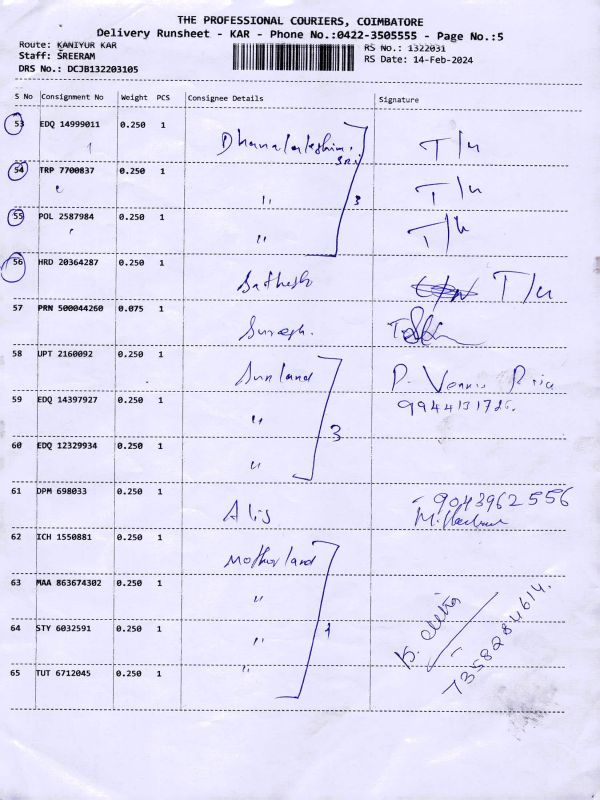 THE PROFESSIONAL COURIERS, COIMBATORE
Delivery Runsheet - KAR - Phone No.:0422-3505555 - Page No.:5
Route: KANIYUR KAR
RS No.: 1322031
Staff: SREERAM
RS Date: 14-Feb-2024
DRS No.: DCJB132203105
S No Consignment No Weight PCS Consignee Details Signature
53 EDQ 14999011 0.250 1 T/u
54 TRP 7700837 0.250 1 " T/u
55 POL 2587984 0.250 1 " T/u
3
56 HRD 20364287 0.250 1 Sathesh T/u
57 PRN 500044260 0.075 1 Suresh.
58 UPT 2160092 0.250 1 Sunland P.
59 EDQ 14397927 0.250 1 " 9944131726.
60 EDQ 12329934 0.250 1 "
3
61 DPM 698033 0.250 1 Alis 9043962556
62 ICH 1550881 0.250 1 Motherland
63 MAA 863674302 0.250 1 "
64 STY 6032591 0.250 1 "
65 TUT 6712045 0.250 1 "
7358284614.